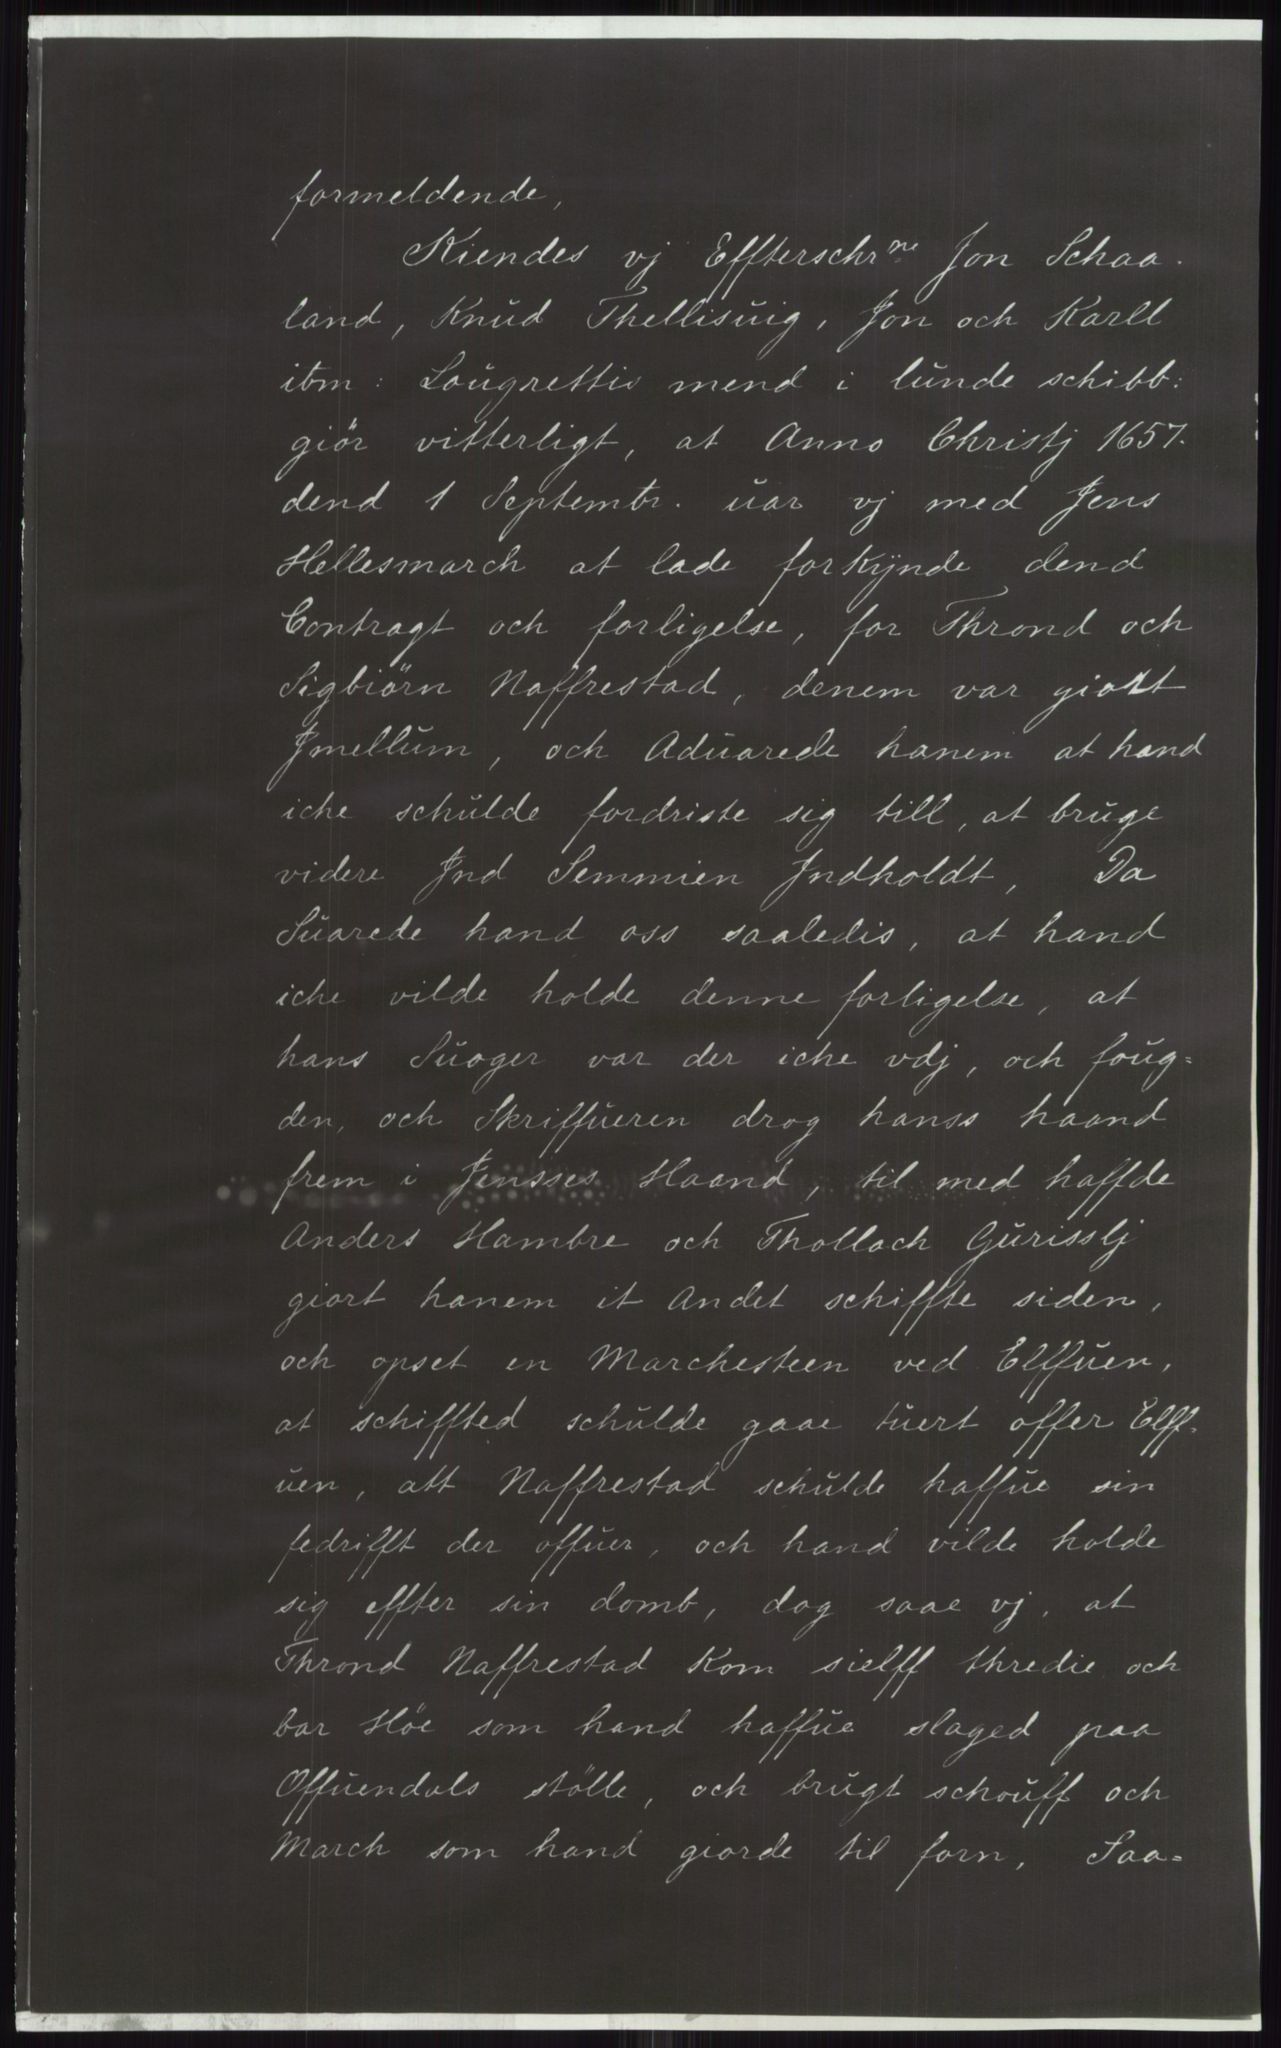 formeldende,
Kiendes vj Effterschrne Jon Schaa-
land, Knud Thellisuig, Jon och Karll
ibm: Laugrettis mend i lunde schibb:
giör vitterligt, at Anno Christj 1657.
dend 1 Septembr. uar vj med Jens
Hellesmarch at lade forkynde dend
Contragt och forligelse, for Thrond och
Sigbiörn Naffrestad, denem var giort
Jmellum, och Aduarede hanem at hand
iche schulde fordriste sig till, at bruge
videre Jnd Semmien Jndholdt, Da
Suarede hand oss saaledis, at hand
iche vilde holde denne forligelse, at
hans Suoger var der iche vdj, och foug-
den, och Skriffueren drog hanss haand
frem i Jensses Haand, til med haffde
Anders Hambre och Thollach Gurisslj
giort hanem it andet schiffte siden,
och opset en Marchesteen ved Elffuen,
at schiffted schulde gaae tuert offer Elff-
uen, att Naffrestad schulde haffue sin
fedrifft der offuer, och hand vilde holde
sig effter sin domb, dog saae vj, at
Thrond Naffrestad kom sielff thredie och
bar Höe som hand haffue slaged paa
Offuendals stölle, och brugt schouff och
March som hand giorde til forn, Saa-